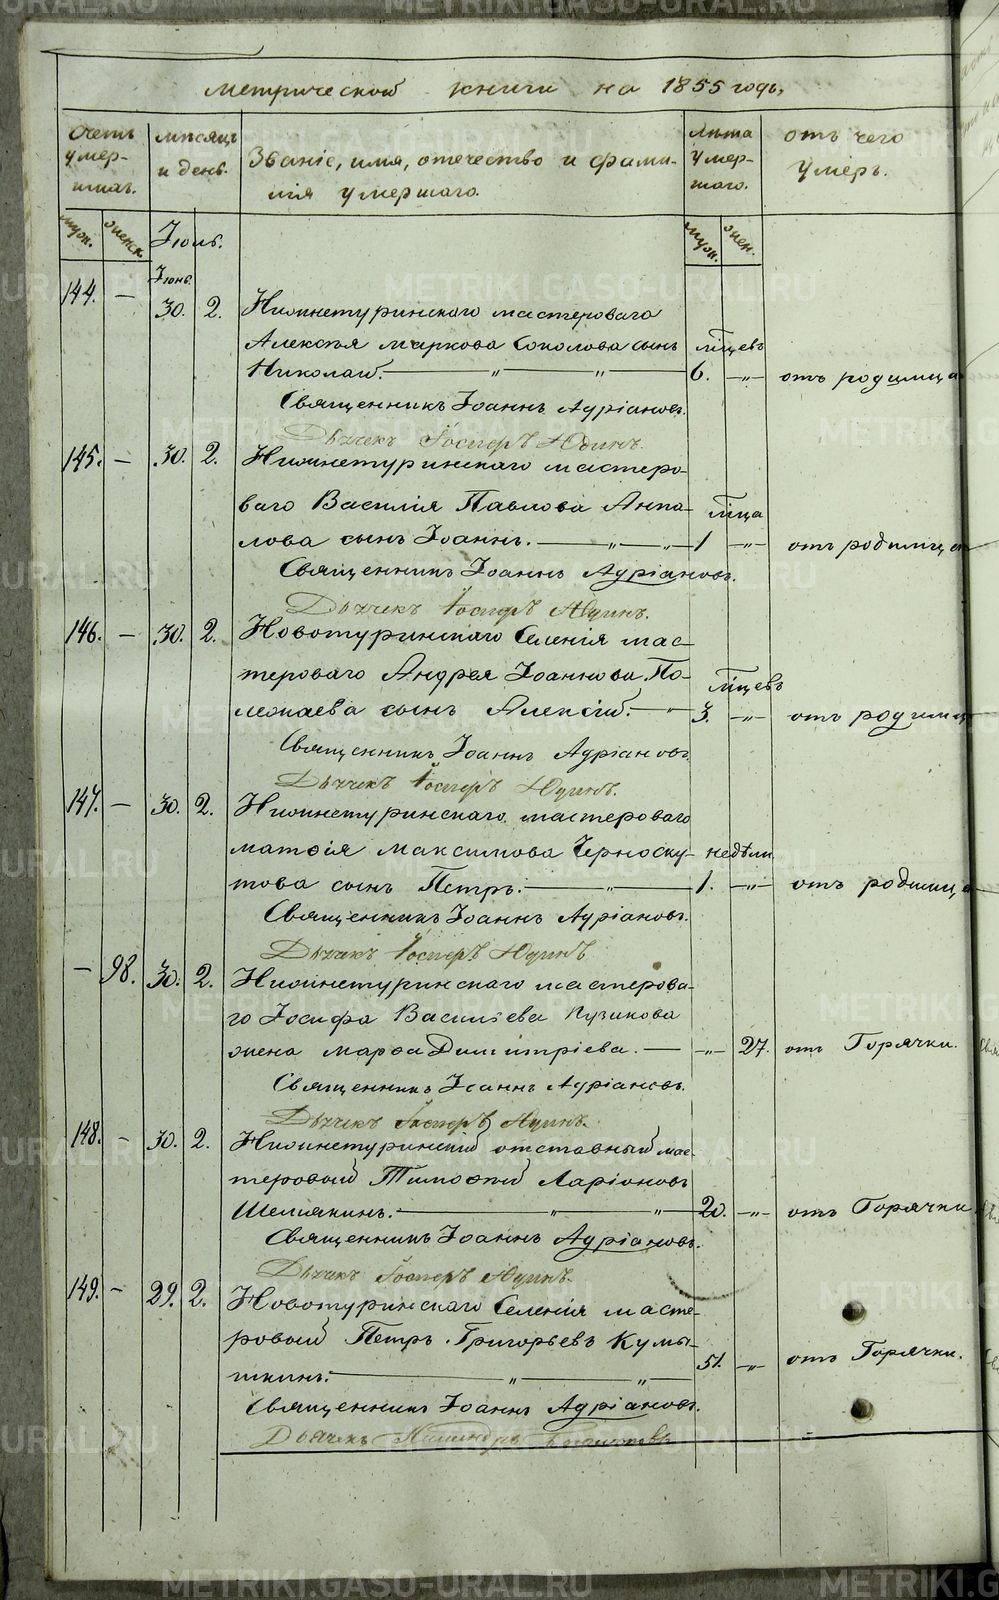 Метрической книги на 1855 годъ,
Счетъ умер-шихъ.
мѣсяцъ и день.
Званіе, имя, отечество и фами-
лія умершаго.
Лѣта умер-шаго.
отъ чего умеръ.
муж. женск.
Іюль.
муж. жен.
Іюнь.
144. — 30. 2. Нижнетуринскаго мастероваго
Алексѣя Маркова Соколова сынъ мѣсяцевъ
Николай. — „ — „ — 6. — „ — отъ родимца
Священникъ Іоаннъ Адріановъ.
Дьячекъ Іосифъ Юдинъ.
145. — 30. 2. Нижнетуринскаго мастеро-
ваго Василія Павлова
лова сынъ Іоаннъ. — „ — „ — 1 — „ — отъ родимца
Священникъ Іоаннъ Адріановъ.
Дьячекъ Іосифъ Юдинъ.
146. — 30. 2. Новотуринскаго Селенія мас-
тероваго Андрея Іоаннова По-
лежаева сынъ Алексій. — „ — 3. — „ — отъ родимца
Священникъ Іоаннъ Адріановъ.
Дьячекъ Іосифъ Юдинъ.
147. — 30. 2. Нижнетуринскаго мастероваго
Матѳія Максимова Черноску- недѣли
това сынъ Петръ. — „ — 1. — „ — отъ родимца
Священникъ Іоаннъ Адріановъ.
Дьячекъ Іосифъ Юдинъ.
— 98. 30. 2. Нижнетуринскаго мастерова-
го Іосифа Васильева Кузикова
жена Марѳа Димитріева. — „ — 27. отъ Горячки.
Священникъ Іоаннъ Адріановъ.
Дьячекъ Іосифъ Юдинъ.
148. — 30. 2. Нижнетуринскій отставный мас-
теровый Тимоѳей Ларіоновъ
Шемякинъ. — „ — „ — 20. — „ — отъ Горячки
Священникъ Іоаннъ Адріановъ.
Дьячекъ Іосифъ Юдинъ.
149. — 29. 2. Новотуринскаго Селенія масте-
ровый Петръ Григорьевъ Кумы-
шкинъ. — „ — „ — 51. — „ — отъ Горячки.
Священникъ Іоаннъ Адріановъ.
Дьячекъ
METRIKI.GASO-URAL.RU